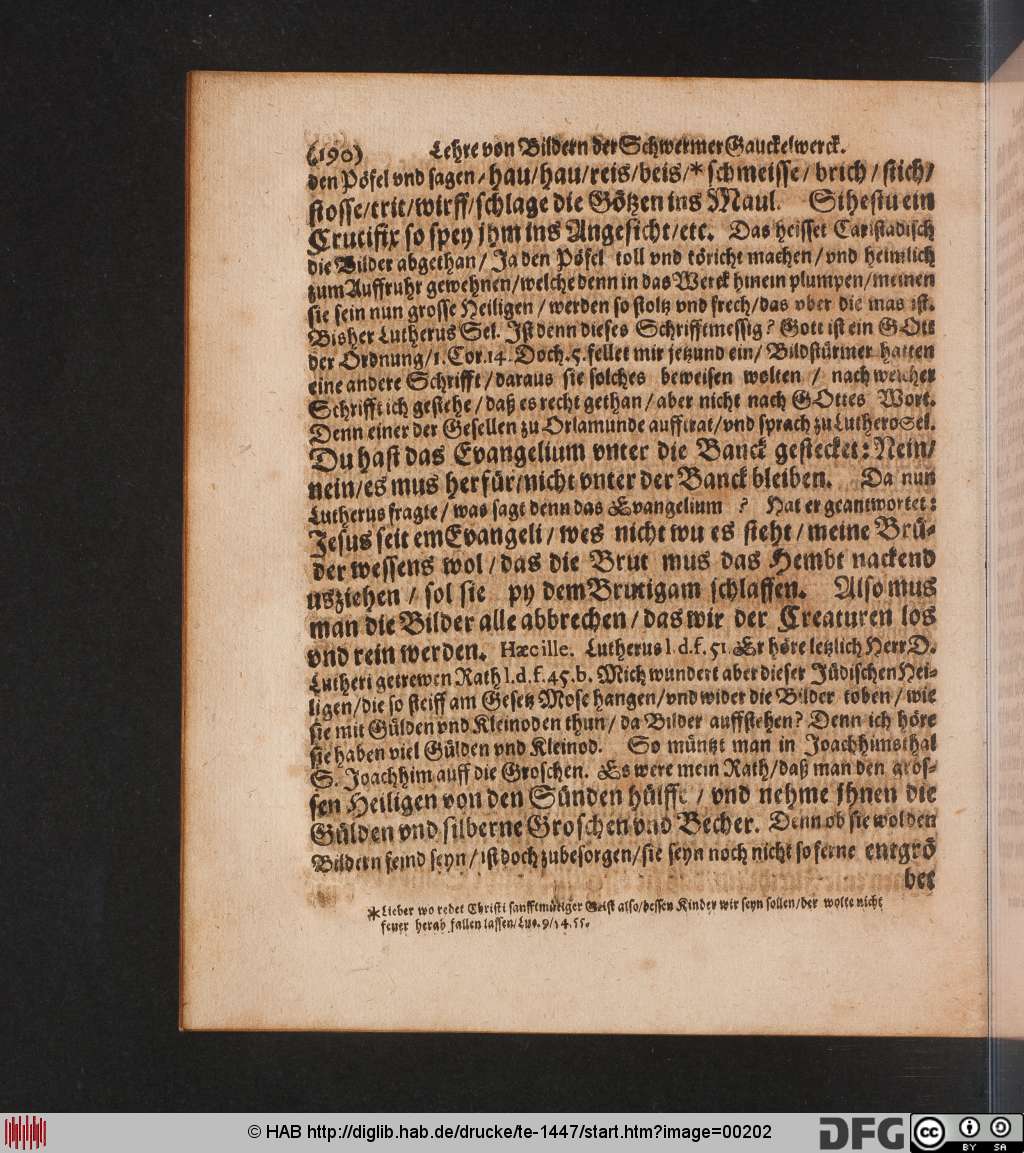 (190) Lehre von Bildern der Schwermer Gauckelwerck.
den Pöfel vnd sagen / hau/hau/reis/beis/* schmeisse/ brich / stich/
stosse/trit/wirff/schlage die Götzen ins Maul. Sihestu ein
Crucifix so spey jhm ins Angesicht/etc. Das heisset Carlstadisch
die Bilder abgethan/ Ja den Pöfel toll vnd töricht machen/vnd heimlich
zum Auffruhr gewehnen/welche denn in das Werck hinein plumpen/meinen
sie sein nun grosse Heiligen / werden so stoltz vnd frech/das vber die mas ist.
Bisher Lutherus Sel. Ist denn dieses Schrifftmessig? Gott ist ein GOtt
der Ordnung/1.Cor.14. Doch.5.fellet mir jetzund ein/ Bildstürmer hatten
eine andere Schrifft/daraus sie solches beweisen wolten / nach welcher
Schrifft ich gestehe/daß es recht gethan/aber nicht nach GOttes Wort.
Denn einer der Gesellen zu Orlamunde aufftrat/vnd sprach zu Luthero Sel.
Du hast das Evangelium vnter die Banck gestecket: Nein/
nein/es mus herfür/nicht vnter der Banck bleiben. Da nun
Lutherus fragte/was sagt denn das Evangelium ? Hat er geantwortet:
Jesus seit em Evangeli/wes nicht wu es steht/meine Brü-
der wessens wol/das die Brut mus das Hembt nackend
usziehen / sol sie py dem Brutigam schlaffen. Also mus
man die Bilder alle abbrechen/das wir der Creaturen los
vnd rein werden. Hæc ille. Lutherus l.d.f.51 Er höre letzlich Herr D.
Lutheri getrewen Rath l.d.f.45.b. Mich wundert aber dieser Jüdischen Hei-
ligen/die so steiff am Gesetz Mose hangen/vnd wider die Bilder toben/wie
sie mit Gülden vnd Kleinoden thun/da Bilder auffstehen? Denn ich höre
sie haben viel Gülden vnd Kleinod. So müntzt man in Joachhimsthal
S. Joachhim auff die Groschen. Es were mein Rath/daß man den gros-
sen Heiligen von den Sünden hülffe / vnd nehme jhnen die
Gülden vnd silberne Groschen vnd Becher. Denn ob sie wol den
Bildern feind seyn/ist doch zubesorgen/sie seyn noch nicht so ferne entgrö
bet
* Lieber wo redet Christi sanfftmütiger Geist also/dessen Kinder wir seyn sollen/der wolte nicht
feuer herab fallen lassen/Luc.9/54.55.
© HAB http://diglib.hab.de/drucke/te-1447/start.htm?image=00202
DFG
cc BY SA